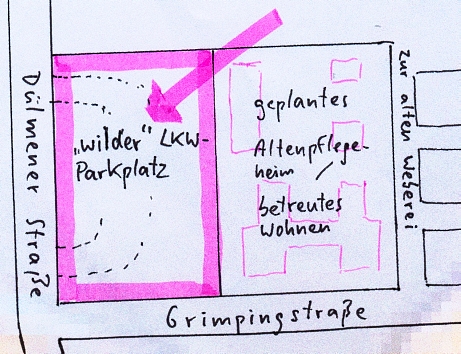 Dülmener Straße
„wilder" LKW-
Parkplatz
geplantes
Altenpflege-
heim /
betreutes
Wohnen
zur alten Weberei
Grimpingstraße